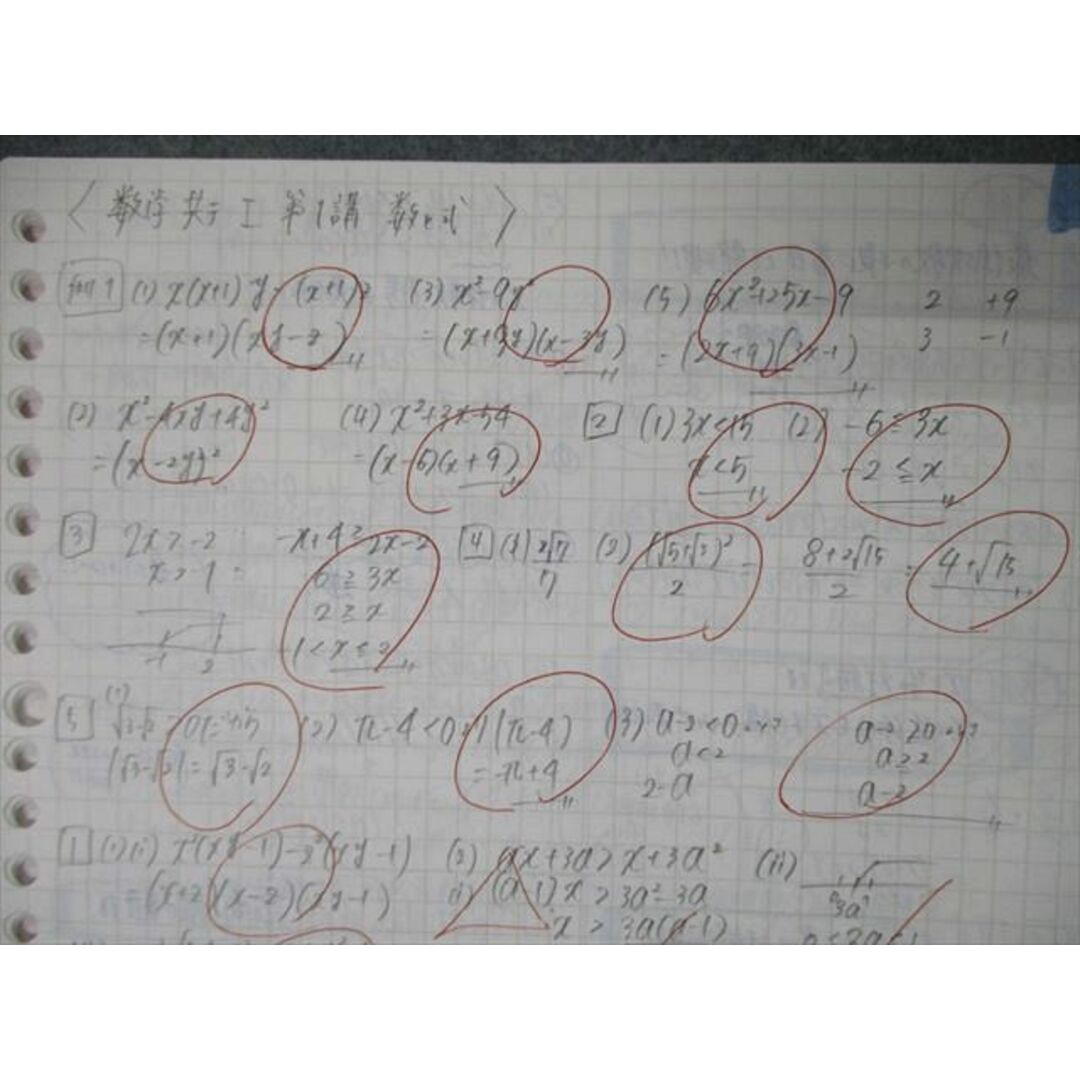 〈数学 共テ I 第1講 数と式〉
(1) x(x+1)y-(x+1)z
=(x+1)(xy-z)
(3) x²-9y²
=(x+3y)(x-3y)
(5) 6x²+25x-9
=(2x+9)(3x-1)
2 +9
3 -1
(2) x²-4xy+4y²
=(x-2y)²
(4) x²+3x-54
=(x-6)(x+9)
2 (1) 3x<15
x<5
(2) -6≦3x
-2≦x
3 2x>-2
x>-1
-1 2
-x+4≧2x-2
6≧3x
2≧x
-1<x≦2
4 (1) 2√7/7
(2) (√5+√3)²/2 = 8+2√15/2 = 4+√15
5 (1)
|√3-√2|=√3-√2
(2) π-4<0より|π-4|
=-π+4
(3) a-2<0のとき
a<2
2-a
a-2≧0のとき
a≧2
a-2
1 (1)(i) x²(xy-1)-z²(xy-1)
=(x+z)(x-z)(xy-1)
(2) ax+3a>x+3a²
(i) (a-1)x>3a²-3a
x>3a(a-1)
(ii)
3a